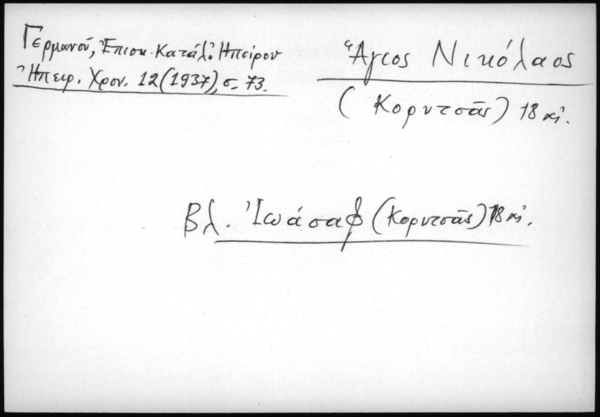 Γερμανοῦ, Ἐπισκ. Κατάλ. Ἠπείρου
Ἠπειρ. Χρον. 12 (1937), σ. 73.
Ἅγιος Νικόλαος
(Κορυτσᾶς) 18 αἰ.
Βλ. Ἰωάσαφ (Κορυτσᾶς) 18 αἰ.